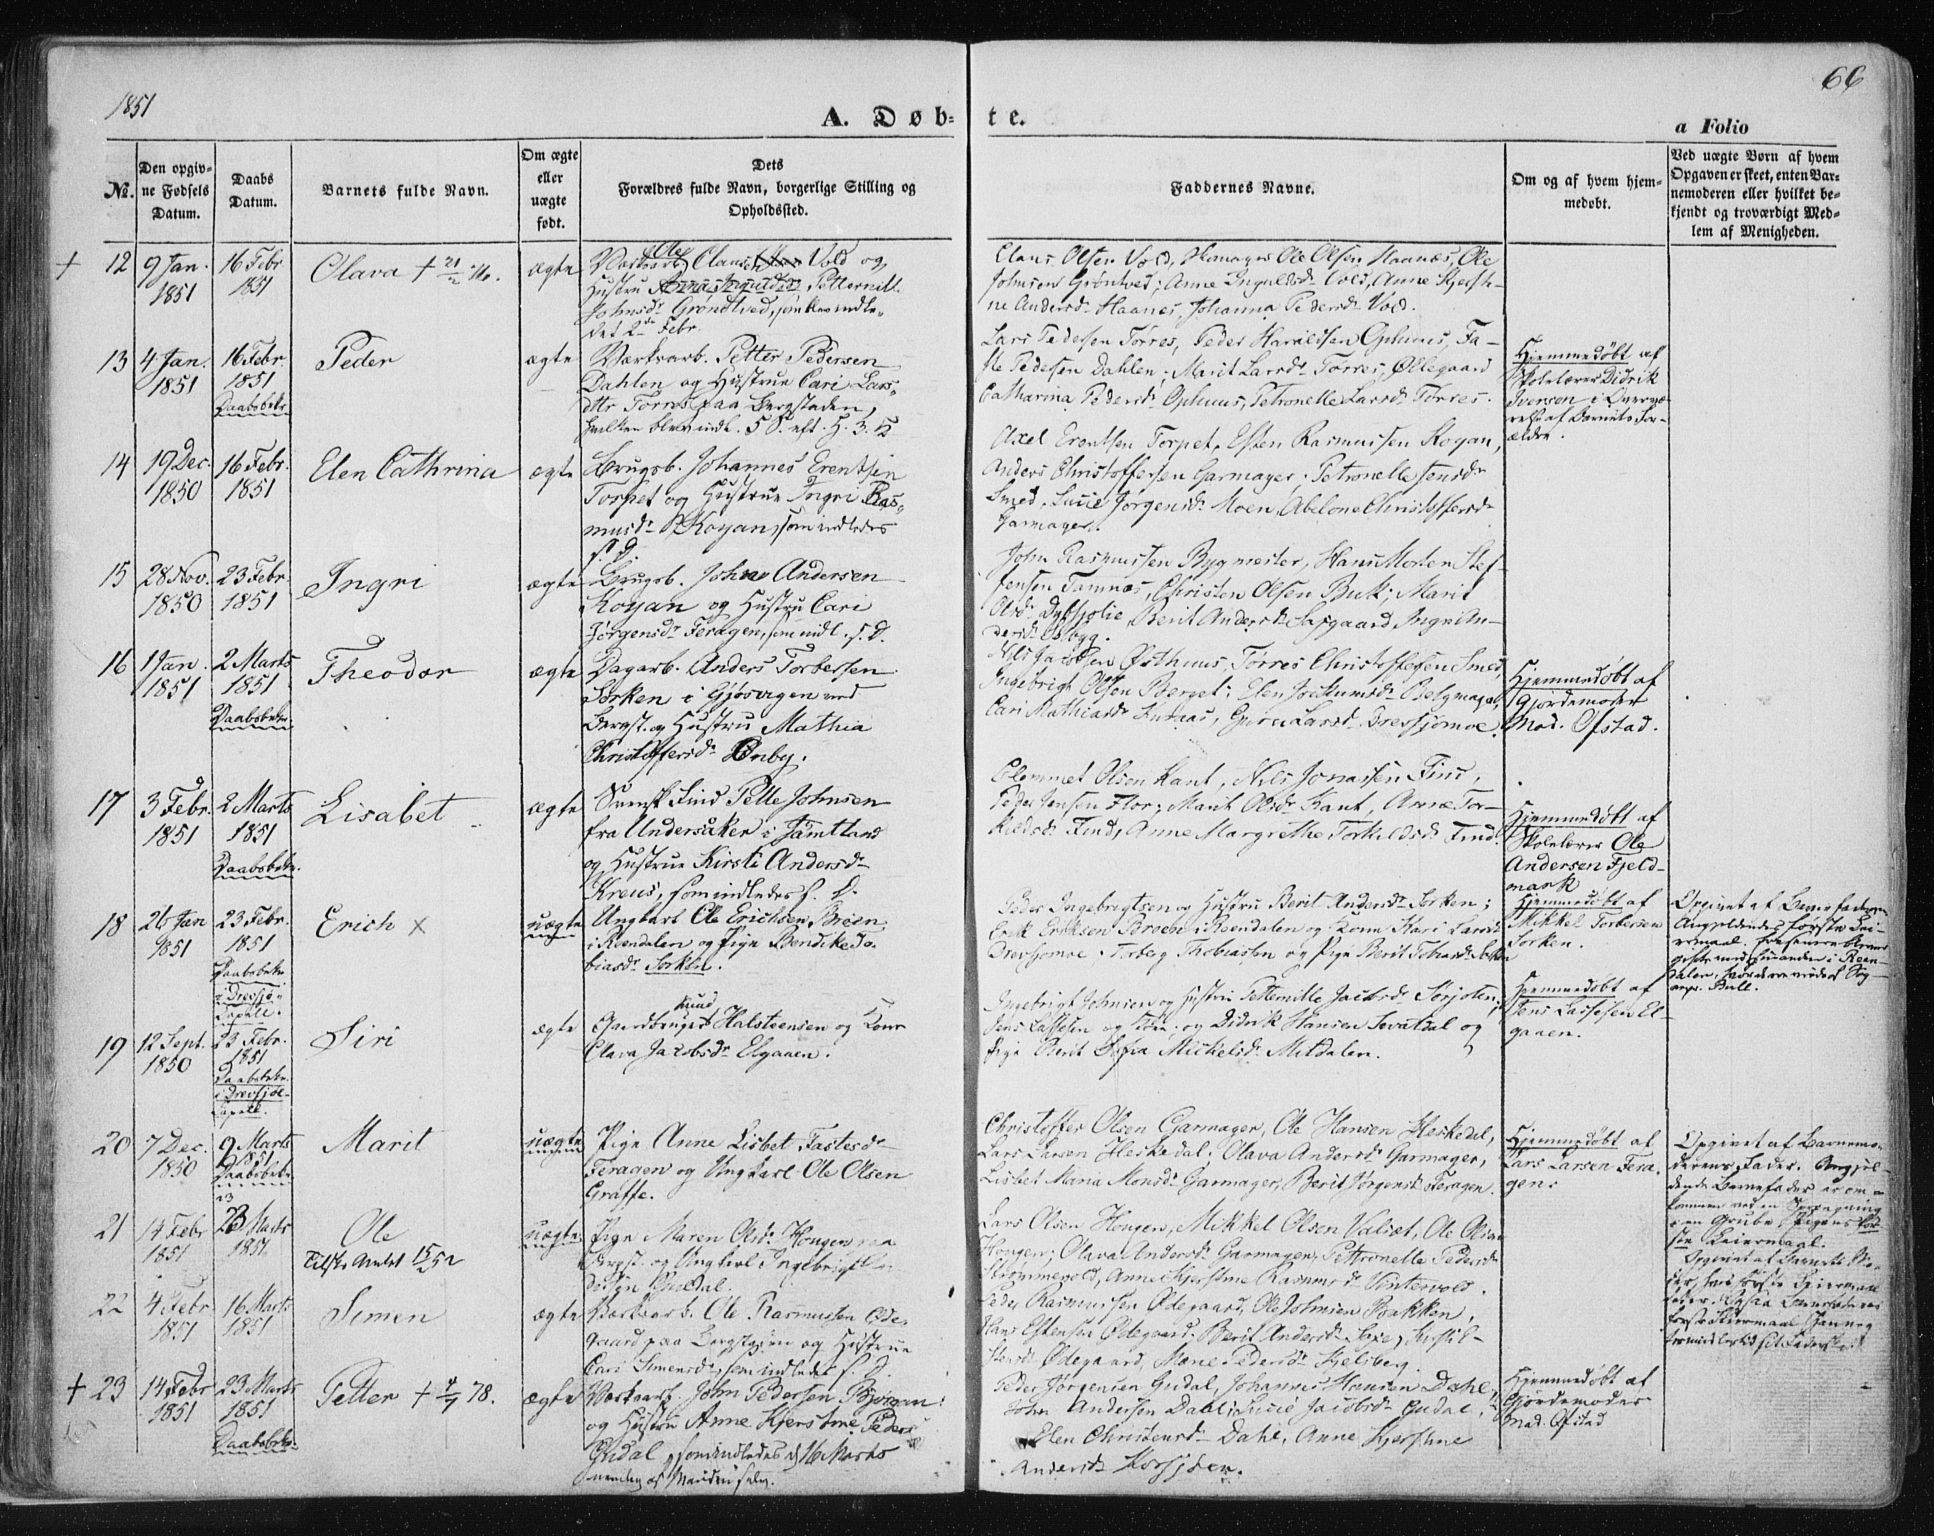 1851
66
A. Døb-
te.
a Folio
№.
Den opgiv-
ne Fødsels
Datum.
Daabs
Datum.
Barnets fulde Navn.
Om ægte
eller
uægte
født.
Dets
Forældres fulde Navn, borgerlige Stilling og
Opholdssted.
Faddernes Navne.
Om og af hvem hjem-
medøbt.
Ved uægte Børn af hvem
Opgaven er skeet, enten Bar-
nemoderen eller hvilket be-
kjendt og troværdigt Med-
lem af Menigheden.
12
9 Jan.
1851
16 Febr
1851
Olava
ægte
Ole
Olaus Vold og
Hustru Petternill.
Johnsdr Grøndtved, som blev indle-
det 2 Febr.
Claus Olsen Vold, Ole Olsen Haanæs, Ole
Johnsen Grøntved; Anne Ingulsdr Vold, Anne Kjersti-
ne Andersdr Haanes, Johanna Pedersdr Vold.
13
4 Jan.
1851
16 Febr.
1851
Daabsbekr.
Peder
ægte
Værksarb. Petter Pedersen
Dahlen og Hustrue Cari Lars-
dtr Torres paa Bergstaden,
Lars Pedersen Törres, Peder Haraldsen Ophuus, Fa-
ste Pedersen Dahlen; Marit Larsdr Torres, Øllegaard
Catharina Pedersdr Ophuus, Petronelle Larsdr Törres.
Hjemmedøbt af
Skolelærer Didrik
Iversen i Overvæ-
relse af Barnets For-
ældre.
14
19 Dec.
1850
16 Febr.
1851
Elen Cathrina
ægte
Brugsb. Johannes Erentsen
Torpet og Hustrue Ingri Ras-
musdr Koyan, som indledes
s. D.
Axel Erentsen Torpet, Esten Rasmussen Koyan,
Anders Christoffersen Garmager; Petronelle Jensdr
Smed, Lucie Jørgensdr Moen, Abelone Christoffersdr
Garmager.
15
28 Nov.
1850
23 Febr.
1851
Ingri
ægte
Brugsb. Johan Andersen
Koyan og Hustru Cari
Jørgensdr Feragen, som indl. s. D.
John Rasmussen Bygmester, Hans Morten Stef-
fensen Tamnæs, Christen Olsen Buk; Marit
Olsdr Dybfjolie, Berit Andersdr Aasgaard, Ingri An-
dersdr
16
1 Jan.
1851
2 Marts
1851
Daabsbekr.
Theodor
ægte
Dagarb. Anders Torbersen
Sorken i Gjøsvigen ved
Bergst. og Hustru Mathia
Christoffersdr Ønby.
Nils Jacobsen Østhuus, Törres Christoffersen Smed,
Ingebrigt Olsen Berget; Elen Jockumsdr
Cari Mathiasdr Guru Larsdr Drevsjømoe.
Hjemmedøbt af
Gjordemoder
Mad. Ofstad.
17
3 Febr
1851
2 Marts
1851
Daabsbekr.
Lisabet
ægte
Svensk Find Pelle Johnsen
fra Undersåker i Jämtland
og Hustrue Kirsti Andersdr
Kreus, som indledes s. D.
Clemmet Olsen Kant, Nils Jonassen Find,
Peder Jensen Flor; Marit Olsdr Kant, Anne Tor-
kildsdr Find, Anne Margrethe Torkildsdr Find.
Hjemmedøbt af
Skolelærer Ole
Andersen Fjeld-
mark
18
26 Jan
1851
23 Febr.
1851
Daabsbekr
i Drevsjø-
Capelle.
Erich x
uægte
Ungkarl Ole Erichsen Breen
i Reendalen og Pige Bendikte To-
biasdr Sorken.
Peder Ingebrigtsen og Hustru Berit Andersdr Sorken;
Erik Eriksen Broen i Reendalen og Kone Kari Larsdr
Drevsjømoe. Torberg Thobiassen og Pige Berit Tobiasdr Sorken
Hjemmedøbt af
Mikkel Torbersen
Sorken.
Opgivet af Barnefaderen
Angjeldendes første Lei-
ermaal.
19
12 Sept.
1850
23 Febr.
1851
Daabsbekr.
i Drevsjøe-
Capell.
Siri
ægte
Gaardbruger Knud Halsteensen og Kone
Olava Jacobsdr Elgaaen.
Ingebrigt Johnsen og Hustru Pettemille Jacobsdr Sørjoten;
Jens Lassesen og Kone. og Didrik Hansen Sevatdal og
Pige Berit Sofia Mickelsdr Mitdalen.
Hjemmedøbt af
Jens Lassesen El-
gaaen.
20
7 Dec.
1850
9 Marts
1851
Daabsbekr.
Marit
uægte
Pige Anne Lisbet Fastesdr
Feragen og Ungkarl Ole Olsen
Graffe.
Christoffer Olsen Garmager, Ole Hansen Heskedal,
Lars Larsen Heskedal; Olava Andersdr Garmager,
Lisbet Maria Monsdr Garmager, Berit Jörgensdr Feragen.
Hjemmedøbt af
Lars Larsen Fera-
gen.
Opgivet af Barnemo-
derens Fader. Angjel-
dende Barnefader er om-
kommen ved en Sprængning
i en Grube, Pigens før-
ste Leiermaal.
21
14 Febr
1851
23 Marts
1851
Ole
uægte
Pige Maren Olsdr Hougen paa
Bergst. og Ungkarl Ingebrigt
Lars Olsen Hougen, Mikkel Olsen Valset, Ole Olsen
Hougen; Olava Andersdr Garmager, Petronelle Pedersdr
Strømmevold, Anne Kjerstine Rasmusdr Vintervold.
22
4 Febr.
1851
16 Marts
1851
Simen
ægte
Værksarb. Ole Rasmussen Øde-
gaard paa Bergstaden og Hustrue
Cari Simensdr, som indledes s. D.
Peder Rasmussen Ødegaard, Ole Johnsen Bakken,
Hans Estensen Ødegaard; Berit Andersdr
Ødegaard, Marie Pedersdr Kjelsberg.
23
14 Febr
1851
23 Marts
1851
Daabsbekr.
Petter
ægte
Værksarb. John Pedersen
og Hustru Anne Kjerstine Peders
Gudal, som indledes d 16 Marts
Peder Jørgensen Gudal, Johannes Hansen Dahl,
John Andersen Dahl; Lucie Jacobsdr Gudal,
Elen Christensdr Dahl, Anne Kjerstine
Andersdr
Hjemmedøbt af
Gjordemoder
Mad. Ofstad